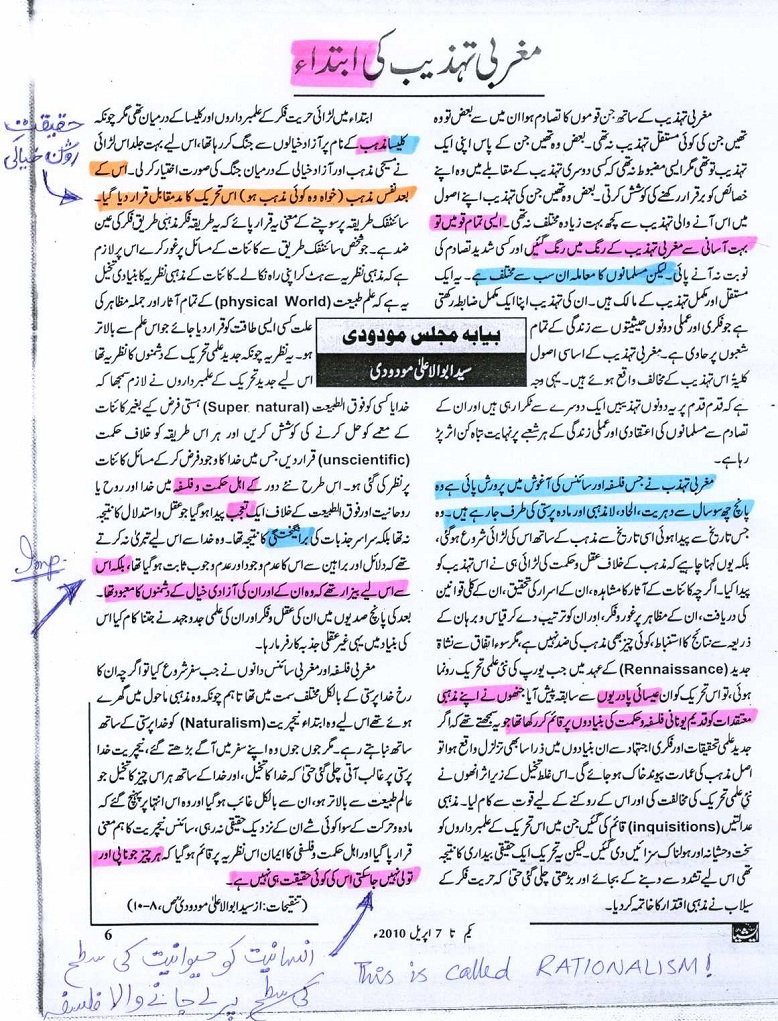 مغربی تہذیب کی ابتداء
مغربی تہذیب کے ساتھ جن قوموں کا تصادم ہوا ان میں سے بعض تو وہ
تھیں جن کی کوئی مستقل تہذیب نہ تھی۔ بعض وہ تھیں جن کے پاس اپنی ایک
تہذیب تو تھی مگر ایسی مضبوط نہ تھی کہ کسی دوسری تہذیب کے مقابلے میں وہ اپنے
خصائص کو برقرار رکھنے کی کوشش کرتی۔ بعض وہ تھیں جن کی تہذیب اپنے اصول
میں اس آنے والی تہذیب سے کچھ بہت زیادہ مختلف نہ تھی۔ ایسی تمام قومیں تو
بہت آسانی سے مغربی تہذیب کے رنگ میں رنگ گئیں اور کسی شدید تصادم کی
نوبت نہ آنے پائی۔ لیکن مسلمانوں کا معاملہ ان سب سے مختلف ہے۔ یہ ایک
مستقل اور مکمل تہذیب کے مالک ہیں۔ ان کی تہذیب اپنا ایک مکمل ضابطہ رکھتی
ہے جو فکری اور عملی دونوں حیثیتوں سے زندگی کے تمام
شعبوں پر حاوی ہے۔ مغربی تہذیب کے اساسی اصول
کلیۃً اس تہذیب کے مخالف واقع ہوئے ہیں۔ یہی وجہ
ہے کہ قدم قدم پر یہ دونوں تہذیبیں ایک دوسرے سے ٹکرا رہی ہیں اور ان کے
تصادم سے مسلمانوں کی اعتقادی اور عملی زندگی کے ہر شعبے پر نہایت تباہ کن اثر پڑ
رہا ہے۔
مغربی تہذیب نے جس فلسفہ اور سائنس کی آغوش میں پرورش پائی ہے وہ
پانچ چھ سو سال سے دہریت، الحاد، لا مذہبی اور مادہ پرستی کی طرف جا رہے ہیں۔ وہ
جس تاریخ سے پیدا ہوئی اسی تاریخ سے مذہب کے ساتھ اس کی لڑائی شروع ہو گئی،
بلکہ یوں کہنا چاہیے کہ مذہب کے خلاف عقل و حکمت کی لڑائی ہی نے اس تہذیب کو
پیدا کیا۔ اگرچہ کائنات کے آثار کا مشاہدہ، ان کے اسرار کی تحقیق، ان کے کلی قوانین
کی دریافت، ان کے مظاہر پر غور و فکر، اور ان کو ترتیب دے کر قیاس و برہان کے
ذریعہ سے نتائج کا استنباط، کوئی چیز بھی مذہب کی ضد نہیں ہے، مگر سوء اتفاق سے نشاۃ
جدید (Rennaissance) کے عہد میں جب یورپ کی نئی علمی تحریک رونما
ہوئی، تو اس تحریک کو ان عیسائی پادریوں سے سابقہ پیش آیا جنھوں نے اپنے مذہبی
معتقدات کو قدیم یونانی فلسفہ و حکمت کی بنیادوں پر قائم کر رکھا تھا جو یہ سمجھتے تھے کہ اگر
جدید علمی تحقیقات اور فکری اجتہاد سے ان بنیادوں میں ذرا سا بھی تزلزل واقع ہوا تو
اصل مذہب کی عمارت پیوند خاک ہو جائے گی۔ اس غلط تخیل کے زیر اثر انھوں نے
نئی علمی تحریک کی مخالفت کی اور اس کے روکنے کے لیے قوت سے کام لیا۔ مذہبی
عدالتیں (inquisitions) قائم کی گئیں جن میں اس تحریک کے علمبرداروں کو
سخت وحشیانہ اور ہولناک سزائیں دی گئیں۔ لیکن یہ تحریک ایک حقیقی بیداری کا نتیجہ
تھی اس لیے تشدد سے دبنے کے بجائے اور بڑھتی چلی گئی حتیٰ کہ حریت فکر کے
سیلاب نے مذہبی اقتدار کا خاتمہ کر دیا۔
بیابہ مجلس مودودی
سید ابوالاعلیٰ مودودی
ابتداء میں لڑائی حریت فکر کے علمبرداروں اور کلیسا کے درمیان تھی مگر چونکہ
کلیسا مذہب کے نام پر آزاد خیالوں سے جنگ کر رہا تھا، اس لیے بہت جلد اس لڑائی
نے مسیحی مذہب اور آزاد خیالی کے درمیان جنگ کی صورت اختیار کر لی۔ اس کے
بعد نفس مذہب (خواہ وہ کوئی مذہب ہو) اس تحریک کا مد مقابل قرار دیا گیا۔
سائنٹفک طریقہ پر سوچنے کے معنی یہ قرار پائے کہ یہ طریقہ فکر مذہبی طریق فکر کی عین
ضد ہے۔ جو شخص سائنٹفک طریق سے کائنات کے مسائل پر غور کرے اس پر لازم
ہے کہ مذہبی نظریہ سے ہٹ کر اپنی راہ نکالے۔ کائنات کے مذہبی نظریہ کا بنیادی تخیل
یہ ہے کہ عالم طبیعت (physical World) کے تمام آثار اور جملہ مظاہر کی
علت کسی ایسی طاقت کو قرار دیا جائے جو اس علم سے بالاتر
ہو۔ یہ نظریہ چونکہ جدید علمی تحریک کے دشمنوں کا نظریہ تھا
اس لیے جدید تحریک کے علمبرداروں نے لازم سمجھا کہ
خدا یا کسی کو فوق الطبیعت (Super natural) ہستی فرض کیے بغیر کائنات
کے معمے کو حل کرنے کی کوشش کریں اور ہر اس طریقہ کو خلاف حکمت
(unscientific) قرار دیں جس میں خدا کا وجود فرض کر کے مسائل کائنات
پر نظر کی گئی ہو۔ اس طرح نئے دور کے اہل حکمت و فلسفہ میں خدا اور روح یا
روحانیت اور فوق الطبیعت کے خلاف ایک تعصب پیدا ہو گیا جو عقل و استدلال کا نتیجہ
نہ تھا بلکہ سراسر جذبات کی برانگیختگی کا نتیجہ تھا۔ وہ خدا سے اس لیے تبری نہ کرتے
تھے کہ دلائل اور براہین سے اس کا عدم وجود اور عدم وجوب ثابت ہو گیا تھا، بلکہ اس
سے اس لیے بیزار تھے کہ وہ ان کے اور ان کی آزادی خیال کے دشمنوں کا معبود تھا۔
بعد کی پانچ صدیوں میں ان کی عقل و فکر اور ان کی علمی جدوجہد نے جتنا کام کیا اس
کی بنیاد میں یہی غیر عقلی جذبہ کارفرما رہا۔
مغربی فلسفہ اور مغربی سائنس دانوں نے جب سفر شروع کیا تو اگرچہ ان کا
رخ خدا پرستی کے بالکل مختلف سمت میں تھا تاہم چونکہ وہ مذہبی ماحول میں گھرے
ہوئے تھے اس لیے وہ ابتداء نیچریت (Naturalism) کو خدا پرستی کے ساتھ
ساتھ نباہتے رہے۔ مگر جوں جوں وہ اپنے سفر میں آگے بڑھتے گئے، نیچریت خدا
پرستی پر غالب آتی چلی گئی حتیٰ کہ خدا کا تخیل، اور خدا کے ساتھ ہر اس چیز کا تخیل جو
عالم طبیعت سے بالاتر ہو، ان سے بالکل غائب ہو گیا اور وہ اس انتہا پر پہنچ گئے کہ
مادہ و حرکت کے سوا کوئی شے ان کے نزدیک حقیقی نہ رہی، سائنس نیچریت کا ہم معنی
قرار پا گیا اور اہل حکمت و فلسفی کا ایمان اس نظریہ پر قائم ہو گیا کہ ہر چیز جو ناپی اور
تولی نہیں جا سکتی اس کی کوئی حقیقت ہی نہیں ہے۔
(تنقیحات: از سید ابوالاعلیٰ مودودیؒ ص، ۸-۱۰)
حقیقتِ
روشن خیالی
Imp.
6
یکم تا 7 اپریل 2010ء
ایشیا
This is called RATIONALISM!
انسانیت کو حیوانیت کی سطح
کی سطح پر لے جانے والا فلسفہ